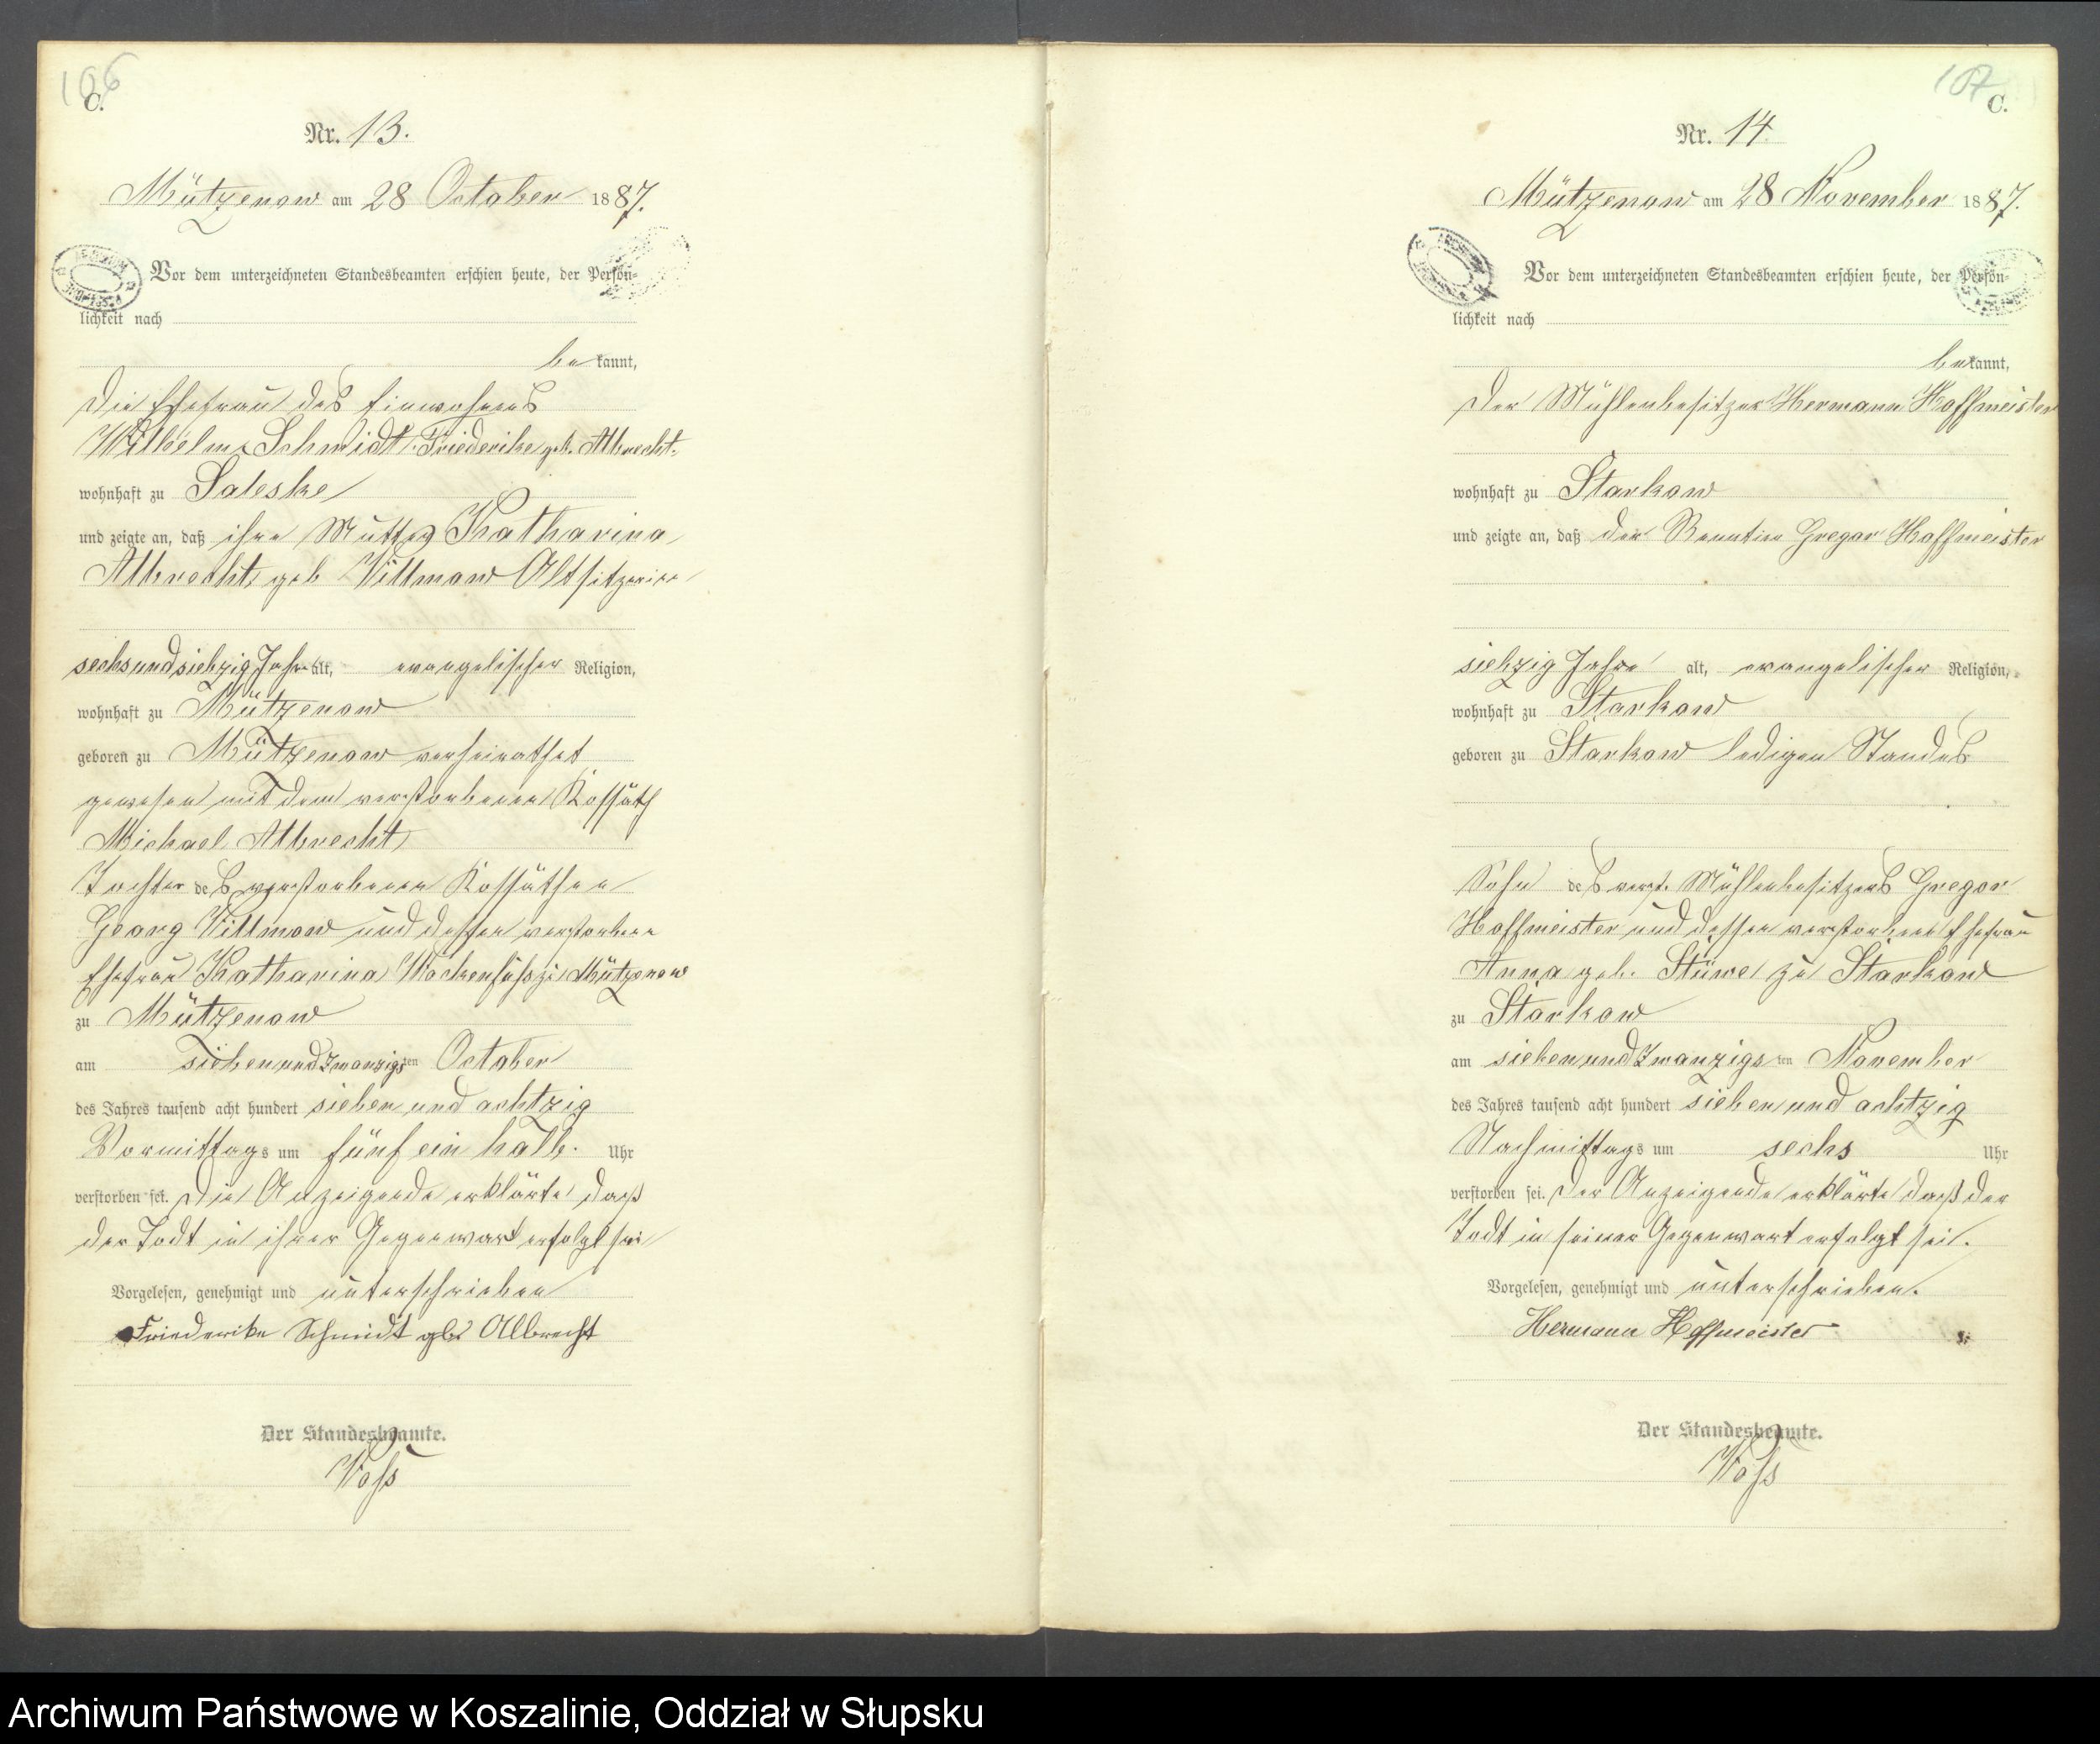 106
C.
Nr. 13.
Mützenow am 28 October 1887.
Vor dem unterzeichneten Standesbeamten erschien heute, der Persön-
lichkeit nach
bekannt,
die Ehefrau des Einwohners
Wilhelm Schmidt, Friederike geb. Albrecht.
wohnhaft zu Saleske
und zeigte an, daß ihre Mutter Katharina
Albrecht geb Villmow Altsitzerin
sechsundsiebzig Jahr alt, evangelischer Religion,
wohnhaft zu Mützenow
geboren zu Mützenow verheirathet
gewesen mit dem verstorbenen Kossäth
Michael Albrecht
Tochter des verstorbenen Kossäthen
Georg Villmow und dessen verstorbene
Ehefrau Katharina Wockenfuß zu Mützenow
zu Mützenow
am siebenundzwanzigsten October
des Jahres tausend acht hundert sieben und achtzig
Vormittags um fünf ein halb. Uhr
verstorben sei. Die Anzeigende erklärte daß
der Todt in ihrer Gegenwart erfolgt sei
Vorgelesen, genehmigt und unterschrieben
Friederike Schmidt gb Albrecht
Der Standesbeamte.
Voß
107
C.
Nr. 14.
Mützenow am 28 November 1887.
Vor dem unterzeichneten Standesbeamten erschien heute, der Persön-
lichkeit nach
bekannt,
Der Mühlenbesitzer Hermann Hoffmeister
wohnhaft zu Starkow
und zeigte an, daß der Rentier Gregor Hoffmeister
siebzig Jahre alt, evangelischer Religion,
wohnhaft zu Starkow
geboren zu Starkow ledigen Standes
Sohn des verst. Mühlenbesitzers Gregor
Hoffmeister und dessen verstorbene Ehefrau
Anna geb. Stüwe zu Starkow
zu Starkow
am siebenundzwanzigsten November
des Jahres tausend acht hundert sieben und achtzig
Nachmittags um sechs Uhr
verstorben sei. Der Anzeigende erklärte daß der
Todt in seiner Gegenwart erfolgt sei.
Vorgelesen, genehmigt und unterschrieben.
Hermann Hoffmeister
Der Standesbeamte.
Voß
Archiwum Państwowe w Koszalinie, Oddział w Słupsku